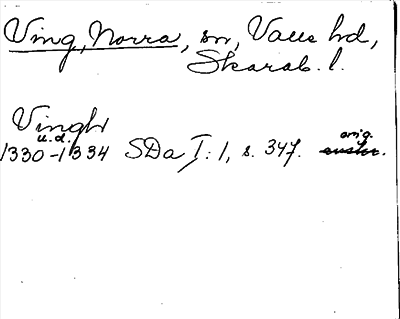 Ving, Norra, sn, Valle hd,
Skarab. l.
Vingh
u.d.
orig.
1330-1334 SDa I: 1, s. 347.